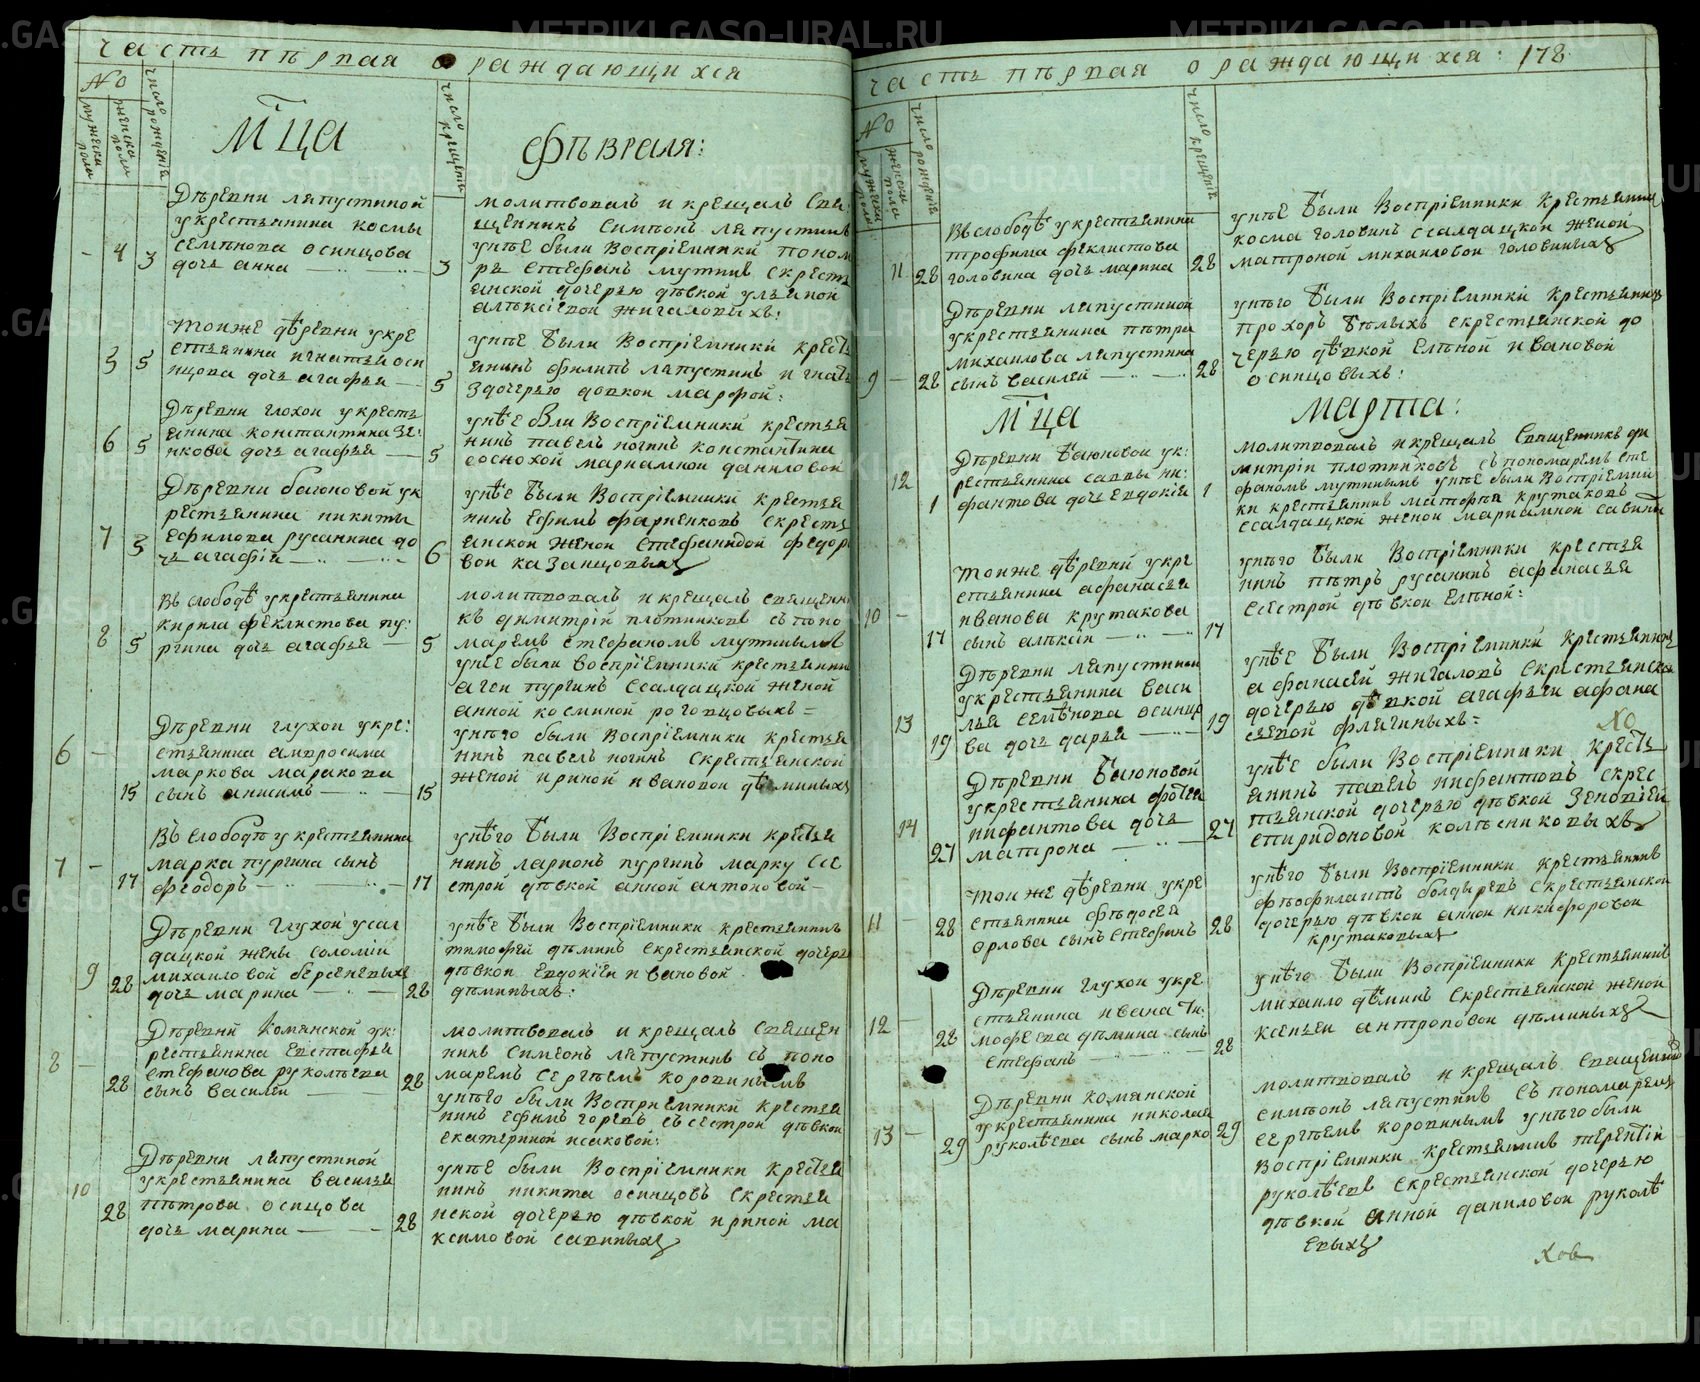 METRIKI.GASO-URAL.RU
часть пѣрвая о раждающихся
№
мужеска пола
женска пола
число рождения
число крещения
Мца Фѣвраля:
4 3
Дѣревни лапустиной
укрестьянина космы
семѣнова осинцова
дочь анна
3
молитвовалъ и крещалъ Свя
щенникъ Симѣонъ лапустинъ
унѣе были Воспрiемники поном
рь стефанъ мутинъ скресть
янской дочерью дѣвкой ульяной
алѣксiевой жигаловыхъ:
5 5
тоиже дѣревни укре
стьянина игнатья оси
нцова дочь агафья
5
унѣе были Воспрiемники кресть
янинъ филипъ лапустинъ игнать
здочерью дѣвкой марфой:
6 5
Дѣревни глохои укресть
янина константина зе:
нкова дочь агафья
5
унѣе были Воспрiемники крестья
нинъ павелъ ногинъ константина
соснохой мариамной даниловой
7 5
Дѣревни баюновой ук
рестьянина никиты
ефимова русанина до
чь агафiя
6
унѣе были Воспрiемники крестья
нинъ ефимъ фарненковъ скресть
янской женой стефанидой федоро
вои казанцовыхъ
8 5
Въ слободѣ укрестьянина
кирила феклистова пу:
ргина дочь агафья
5
молитвовалъ и крещалъ священни
къ димитрiй плотниковъ съ поно
маремъ стефаномъ мутинымъ
унѣе были воспрiемники крестьянинъ
агеи пургинъ ссалдацкой женой
анной косминой роговцовыхъ=
6 15
Дѣревни глухои укре:
стьянина амвросима
маркова маракова
сынъ анисимъ
15
унѣго были Воспрiемники крестья
нинъ павелъ ногинъ скрестьянской
женой ириной ивановои дѣминыхъ
7 17
Въ слободѣ укрестьянина
марка пургина сынъ
феодоръ
17
унѣго были Воспрiемники крестья
нинъ ларионъ пургинъ марку сес
строй дѣвкой анной антоновой
9 28
Дѣревни Глухой усал
дацкой жены соломiи
михаиловой берсеневыхъ
дочь марина
28
унѣе были Воспрiемники крестьянинъ
тимофей дѣминъ скрестьянской дочерь
дѣвкои Евдокiеи ивановой
дѣминыхъ:
8 28
Дѣревни Команской ук:
рестьянина Евстафья
стефанова руколѣева
сынъ василеи
28
молитвовалъ и крещалъ Священ
никъ Симеонъ лапустинъ съ поно
маремъ сергѣемъ коровинымъ
унѣго были Восприемники крестья
нинъ ефимъ горевъ съсестрои дѣвкои
екатериной исаковой:
10 28
Дѣревни лапустиной
укрестьянина василья
пѣтрова осинцова
дочь марина
28
унѣе были Воспрiемники крестья
нинъ никита осинцовъ скрестья
нской дочерью дѣвкой ириной ма
ксимовой савиныхъ
часть пѣрвая о раждающихся: 178
№
мужеска пола
женска пола
число рождения
число крещения
11 28
Въ слободѣ укрестьянина
трофима феклистова
головина дочь марина
28
унѣе были Воспрiемники Крестьянинъ
косма головинъ ссалдацкой женой
матроной михаиловой головиныхъ
9 28
Дѣревни лапустиной
укрестьянина пѣтра
михаилова лапустина
сынъ василей
28
унѣго были Воспрiемники Крестьянинъ
прохоръ бѣлыхъ скрестьянской до
черью дѣвкой Елѣной ивановой
осинцовыхъ:
Мца Марта:
12 1
Дѣревни баюновои ук:
рестьянина саввы ни:
фантова дочь евдокiя
1
молитвовалъ и крещалъ Священникъ ди
митрiи плотниковъ съ пономаремъ сте
фаномъ мутинымъ унѣе были Воспрiемни
ки крестьянинъ матѳѣй крутаковъ
ссалдацкой женои мариамной савины
10 17
тоиже дѣревни укре
стьянина афанасья
иванова крутакова
сынъ алѣксiи
17
унѣго были Воспрiемники крестья
нинъ пѣтръ русанинъ афанасья
ссестрой дѣвкой елѣной:
13 19
Дѣревни лапустинои
укрестьянина васи
лья семѣнова осинцо
ва дочь дарья
19
унѣе были Воспрiемники Крестьянинъ
афанасей жигаловъ скрестьянской
дочерью дѣвкой агафьеи афана
сьевой флягиныхъ=
14 27
Дѣревни баюновой
укрестьянина фотея
нифантова дочь
матрона
27
унѣе были Воспрiемники кресть
янинъ павелъ нифантовъ скрес
тьянской дочерью дѣвкой зеновiей
спиридоновой колѣсниковыхъ
11 28
тоиже дѣревни укре
стьянина фѣдосея
орлова сынъ стефанъ
28
унѣго были Воспрiемники крестьянинъ
фѣофилактъ болдыревъ скрестьянской
дочерью дѣвкои аннои никифоровои
крутаковыхъ
12 28
Дѣревни глухои укре
стьянина ивана ти:
мофеева дѣмина сынъ
стефанъ
28
унѣго были Воспрiемники Крестьянинъ
михаило дѣминъ скрестьянской женои
ксеньеи антроповои дѣминыхъ
13 29
Дѣревни команской
укрестьянина николая
руколѣева сынъ марко
29
молитвовалъ и крещалъ Священникъ
симѣонъ лапустинъ съ пономаремъ
сергѣемъ коровинымъ унѣго были
Воспрiемники крестьянинъ терентiи
руколѣевъ скрестьянской дочерью
дѣвкой анной даниловой руколѣ
евыхъ